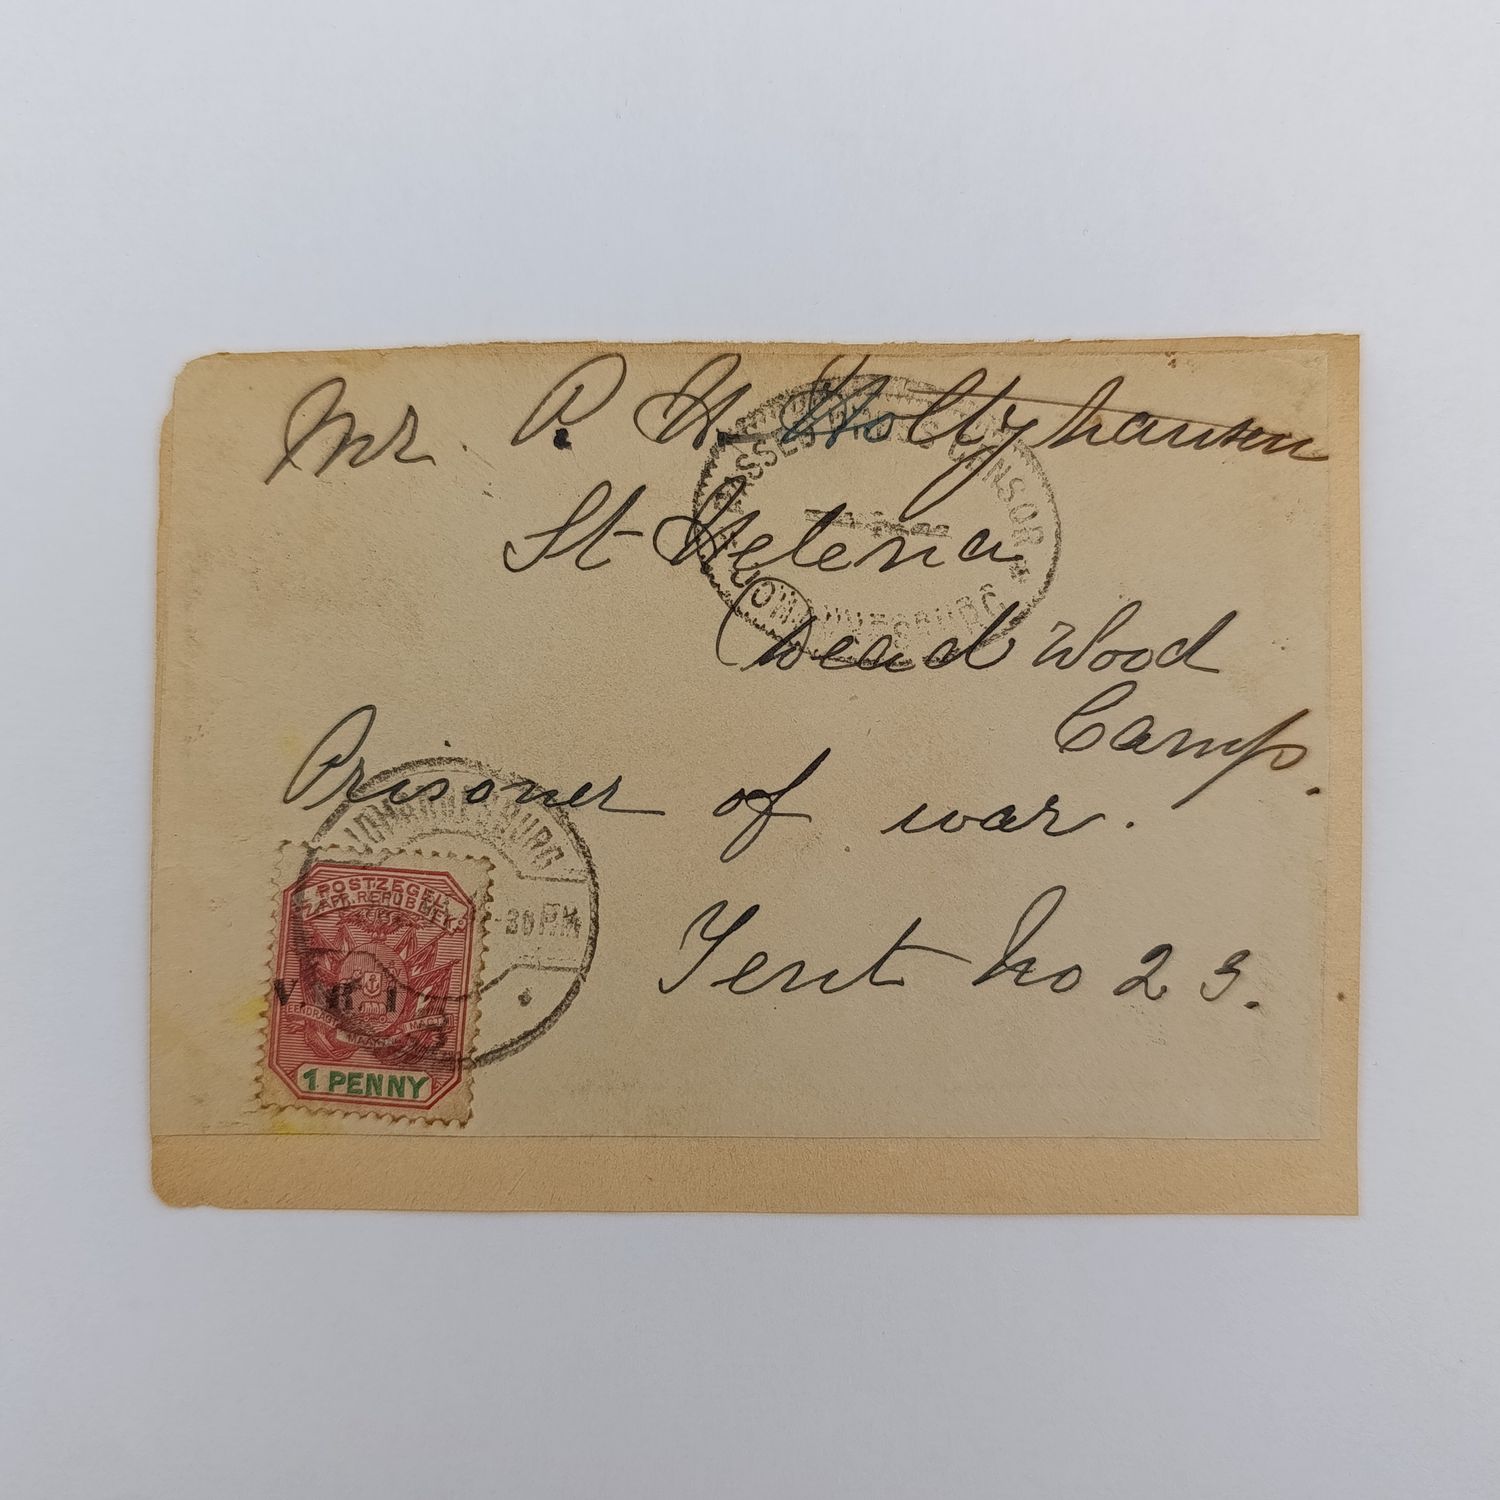 Mr. P. H. Holtzhausen
St Helena
Dead Wood
Camp.
Prisoner of war.
Tent No 23.
PASSED PRESS CENSOR
JOHANNESBURG
JOHANNESBURG
-30 PM
POSTZEGEL
Z. AFR. REPUBLIEK.
V. R. I.
EENDRAGT MAAKT MAGT
1 PENNY